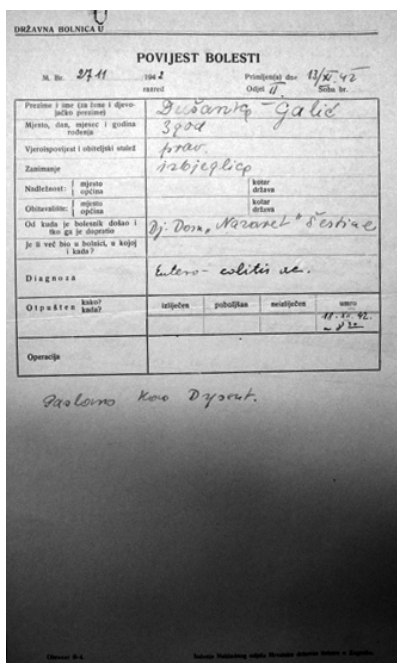 DRŽAVNA BOLNICA U
POVIJEST BOLESTI
M. Br. 2711 1942 Primljen(a) dne 13/XI. 42
razred Odjel II Soba br.
Prezime i ime (za žene i djevojačko prezime) Dušanka Galić
Mjesto, dan, mjesec i godina rođenja 3 god
Vjeroispovijest i obiteljski stalež prav.
Zanimanje izbjeglica
Nadležnost: mjesto općina kotar država
Obitavalište: mjesto općina kotar država
Od kuda je bolesnik došao i tko ga je dopratio Dj. Dom „Nazaret" Šestine
Je li već bio u bolnici, u kojoj i kada?
Diagnoza Entero-colitis ac.
Otpušten kako? kada? izliječen poboljšan neizliječen umro
42.
Operacija
kao Dysent.